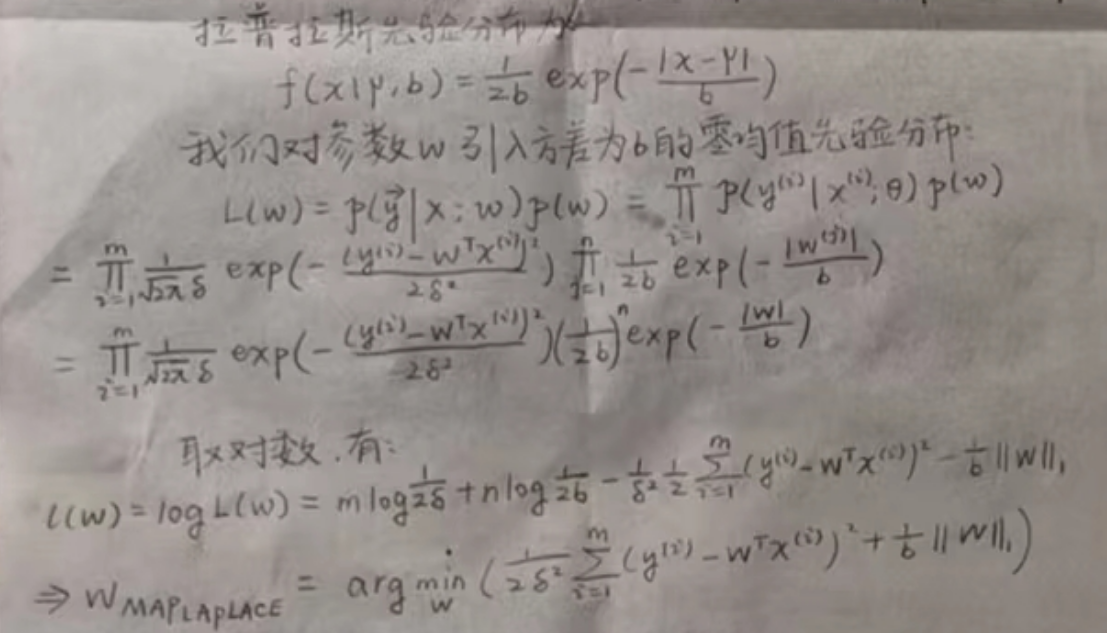 拉普拉斯先验分布为
f(x|μ,b) = 1/2b exp(-|x-μ|/b)
我们对参数w引入方差为b的零均值先验分布:
L(w) = p(y⃗|x;w)p(w) = ∏_{i=1}^{m} p(y^{(i)}|x^{(i)};θ)p(w)
= ∏_{i=1}^{m} 1/√2π δ exp(-(y^{(i)}-w^Tx^{(i)})²/2δ²) ∏_{j=1}^{n} 1/2b exp(-|w^{(j)}|/b)
= ∏_{i=1}^{m} 1/√2π δ exp(-(y^{(i)}-w^Tx^{(i)})²/2δ²)(1/2b)^n exp(-|w|/b)
取对数,有:
l(w) = log L(w) = m log 1/2δ + n log 1/2b - 1/δ² 1/2 ∑_{i=1}^{m} (y^{(i)}-w^Tx^{(i)})² - 1/b ||w||₁
⇒ W_{MAPLAPLACE} = arg min_w (1/2δ² ∑_{i=1}^{m} (y^{(i)}-w^Tx^{(i)})² + 1/b ||w||₁)